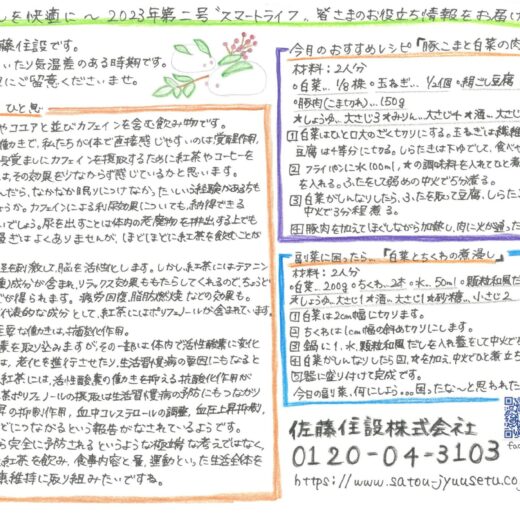 しを快適に～2023年第二号"スマートライフ"、皆さまのお役立ち情報をお届け
藤住設です。
いたり気温差のある時期です。
にご留意くださいませ。
ひと息
やココアと並びカフェインを含む飲み物です。
働きで、私たちが体で直接感じやすいのは覚醒作用。
眠覚ましにカフェインを摂取するために紅茶やコーヒーを
は、その効果を少なからず感じているかと思います。
んだら、なかなか眠りにつけなかった。といういう経験がある方も
ょうか。カフェインによる利尿効果についても、納得できる
いでしょう。尿を出すことは体内の老廃物を排出する上でも
過ぎはよくありませんが、ほどほどに紅茶を飲むことが
経を刺激して、脳を活性化とします。しかし、紅茶にはテアニン
成分が含まれ、リラックス効果ももたらしてくれるので、ちょうど
が得られます。疲労回復、脂肪燃焼などの効果も。
代表的な成分として、紅茶にはポリフェノールが含まれています。
主な働きは、抗酸化作用。
素を取り込みますが、その一部は体内で活性酸素に変化
は、老化を進行させたり、生活習慣病の要因にもなると
紅茶には、活性酸素の働きを抑える抗酸化作用が
茶ポリフェノールの摂取は生活習慣病の予防にもつながり
昇の抑制作用、血中コレステロールの調整、血圧上昇抑制、
どにつながるという報告がなされているようです。
ら完全に予防されるというような極端な考えではなく、
紅茶を飲み、食事内容と量、運動といった生活全体を
康維持に取り組みたいですね。
今月のおすすめレシピ「豚こまと白菜の肉
材料：2人分
○白菜…1/8株 ○玉ねぎ…1/2個 ○絹ごし豆腐
○豚肉(こま切れ)…150g
★しょうゆ…大さじ3 ★みりん…大さじ4 ★酒…大さじ
1 白菜はひと口大のざく切りにする。玉ねぎは繊維
豆腐は4等分に切る。しらたきは下ゆでして、食べや
2 フライパンに水100ml、★の調味料を入れてひと煮
を入れる。ふたをして弱めの中火で5分煮る。
3 白菜がしんなりしたら、ふたを取って豆腐、しらた
中火で3分程煮る。
4 豚肉を加えてほぐしながら加熱し、肉に火が通った
副菜に困ったら…「白菜とちくわの煮浸し」
材料：2人分
○白菜…200g ○ちくわ…2本 ○水…50ml ○顆粒和風だ
★しょうゆ…大さじ1 ★酒…大さじ1 ★砂糖…小さじ2
1 白菜は2cm幅に切ります。
2 ちくわは1cm幅の斜め切りにします。
3 鍋に1、水、顆粒和風だしを入れ蓋をして中火で5
4 白菜がしんなりしたら2、★を加え、中火でひと煮立ち
5 器に盛り付けて完成です。
今日の副菜、何にしよう…。困ったな～と思われた
佐藤住設株式会社
0120-04-3103
https://www.satou-jyuusetu.co